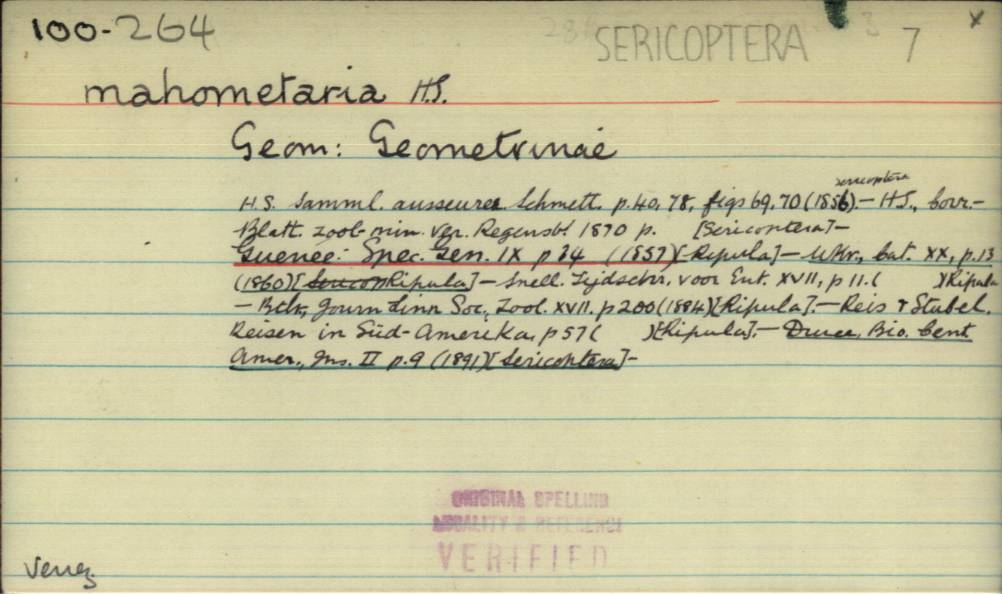 100-264
SERICOPTERA 7 x
mahometaria H.S.
Geom: Geometrinae
sericoptera
H.S. Samml. ausseures Schmett. p.40, 78, figs 69, 70 (1856).- H.S., Corr.-
Blatt. zool-min. ver. Regensb! 1870 p. [Sericoptera]-
Guenée: Spec. Gen. IX p 34 (1857)[Ripula]- Wkr., Cat. XX, p.13
(1860)[Sericop Ripula]- Snell. Tijdschr. voor Ent. XVII, p 11. ( )[Ripula
- Btlr, Journ Linn Soc, Zool. XVII. p 200 (1884)[Ripula].- Reis & Stubel.
Reisen in Süd-Amerika, p 57 ( )[Ripula].- Druce, Bio. Cent
Amer., Ins. II p.9 (1891)[Sericoptera]-
ORIGINAL SPELLING
LOCALITY & REFERENCE
VERIFIED
Venez